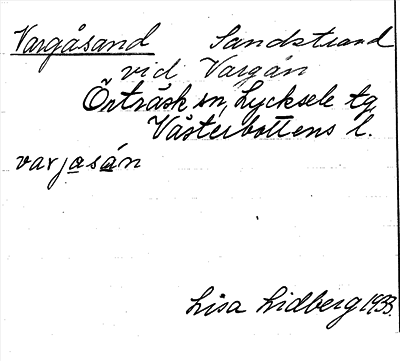 Vargåsand Sandstrand
vid Vargån
Örträsk sn, Lycksele tg
Västerbottens l.
varjasán
Lisa Lidberg 1933.